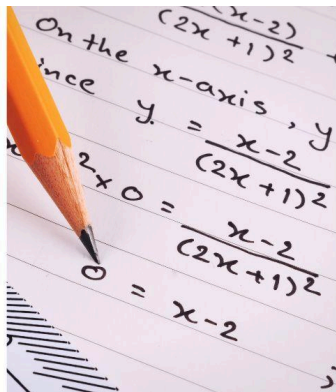 (x-2)
(2x+1)²
On the x-axis, y
ince y = x-2
(2x+1)²
² x 0 = x-2
(2x+1)²
0 = x-2